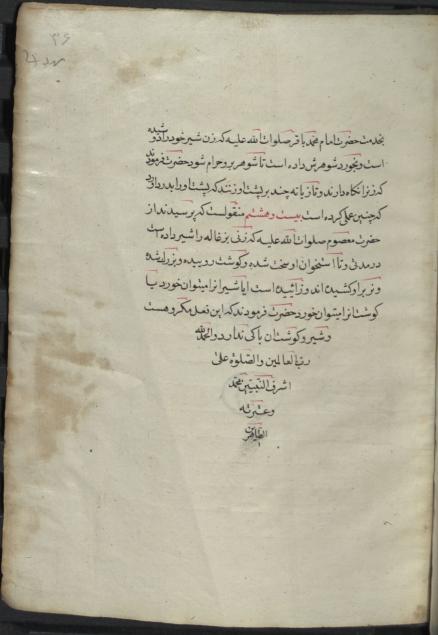 ۳۶
بخدمت حضرت امام محمد باقر صلوات الله علیه که زن شیر خود را دوشیده
است و بخورد شوهرش داده است تا شوهر بر او حرام شود حضرت فرمودند
که زنرا نگاه دارند و تازیانه چند بر پشت او زنند که پشت او را بدرد آورد
که چنین عملی کرده است بیست و هشتم منقولست که پرسیدند از
حضرت معصوم صلوات الله علیه که زنی بزغاله را شیر داده است
در مدتی و تا استخوان او سخت شده و گوشت روییده و بزرگ شده
و نر بر او کشیده اند و زائیده است ایا شیر انرا میتوان خورد یا
گوشت انرا میتوان خورد حضرت فرمودند که این فعل مکروهست
و شیر و گوشت ان باکی ندارد والحمد لله
رب العالمین والصلوة علی
اشرف النبیین محمد
و عترته
الطاهرین